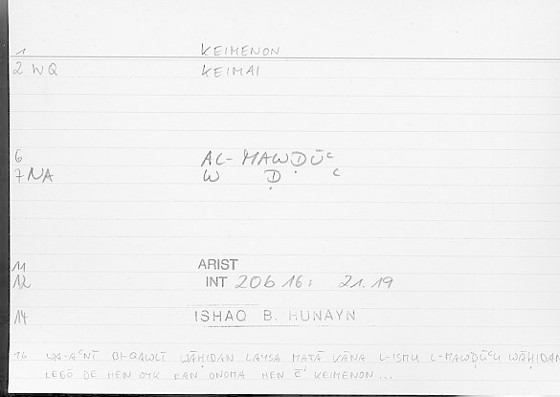 1 KEIMENON
2 WQ KEIMAI
6 AL-MAWḌŪᶜ
7 NA W Ḍ ᶜ
11 ARIST
12 INT 20b 16; 21.19
14 ISHAQ B. HUNAYN
16 WA-AᶜNĪ BI-QAWLĪ WĀḤIDAN LAYSA MATĀ KĀNA L-ISMU L-MAWḌŪᶜU WĀḤIDAN
LEGŌ DE HEN OYK EAN ONOMA HEN Ē' KEIMENON...